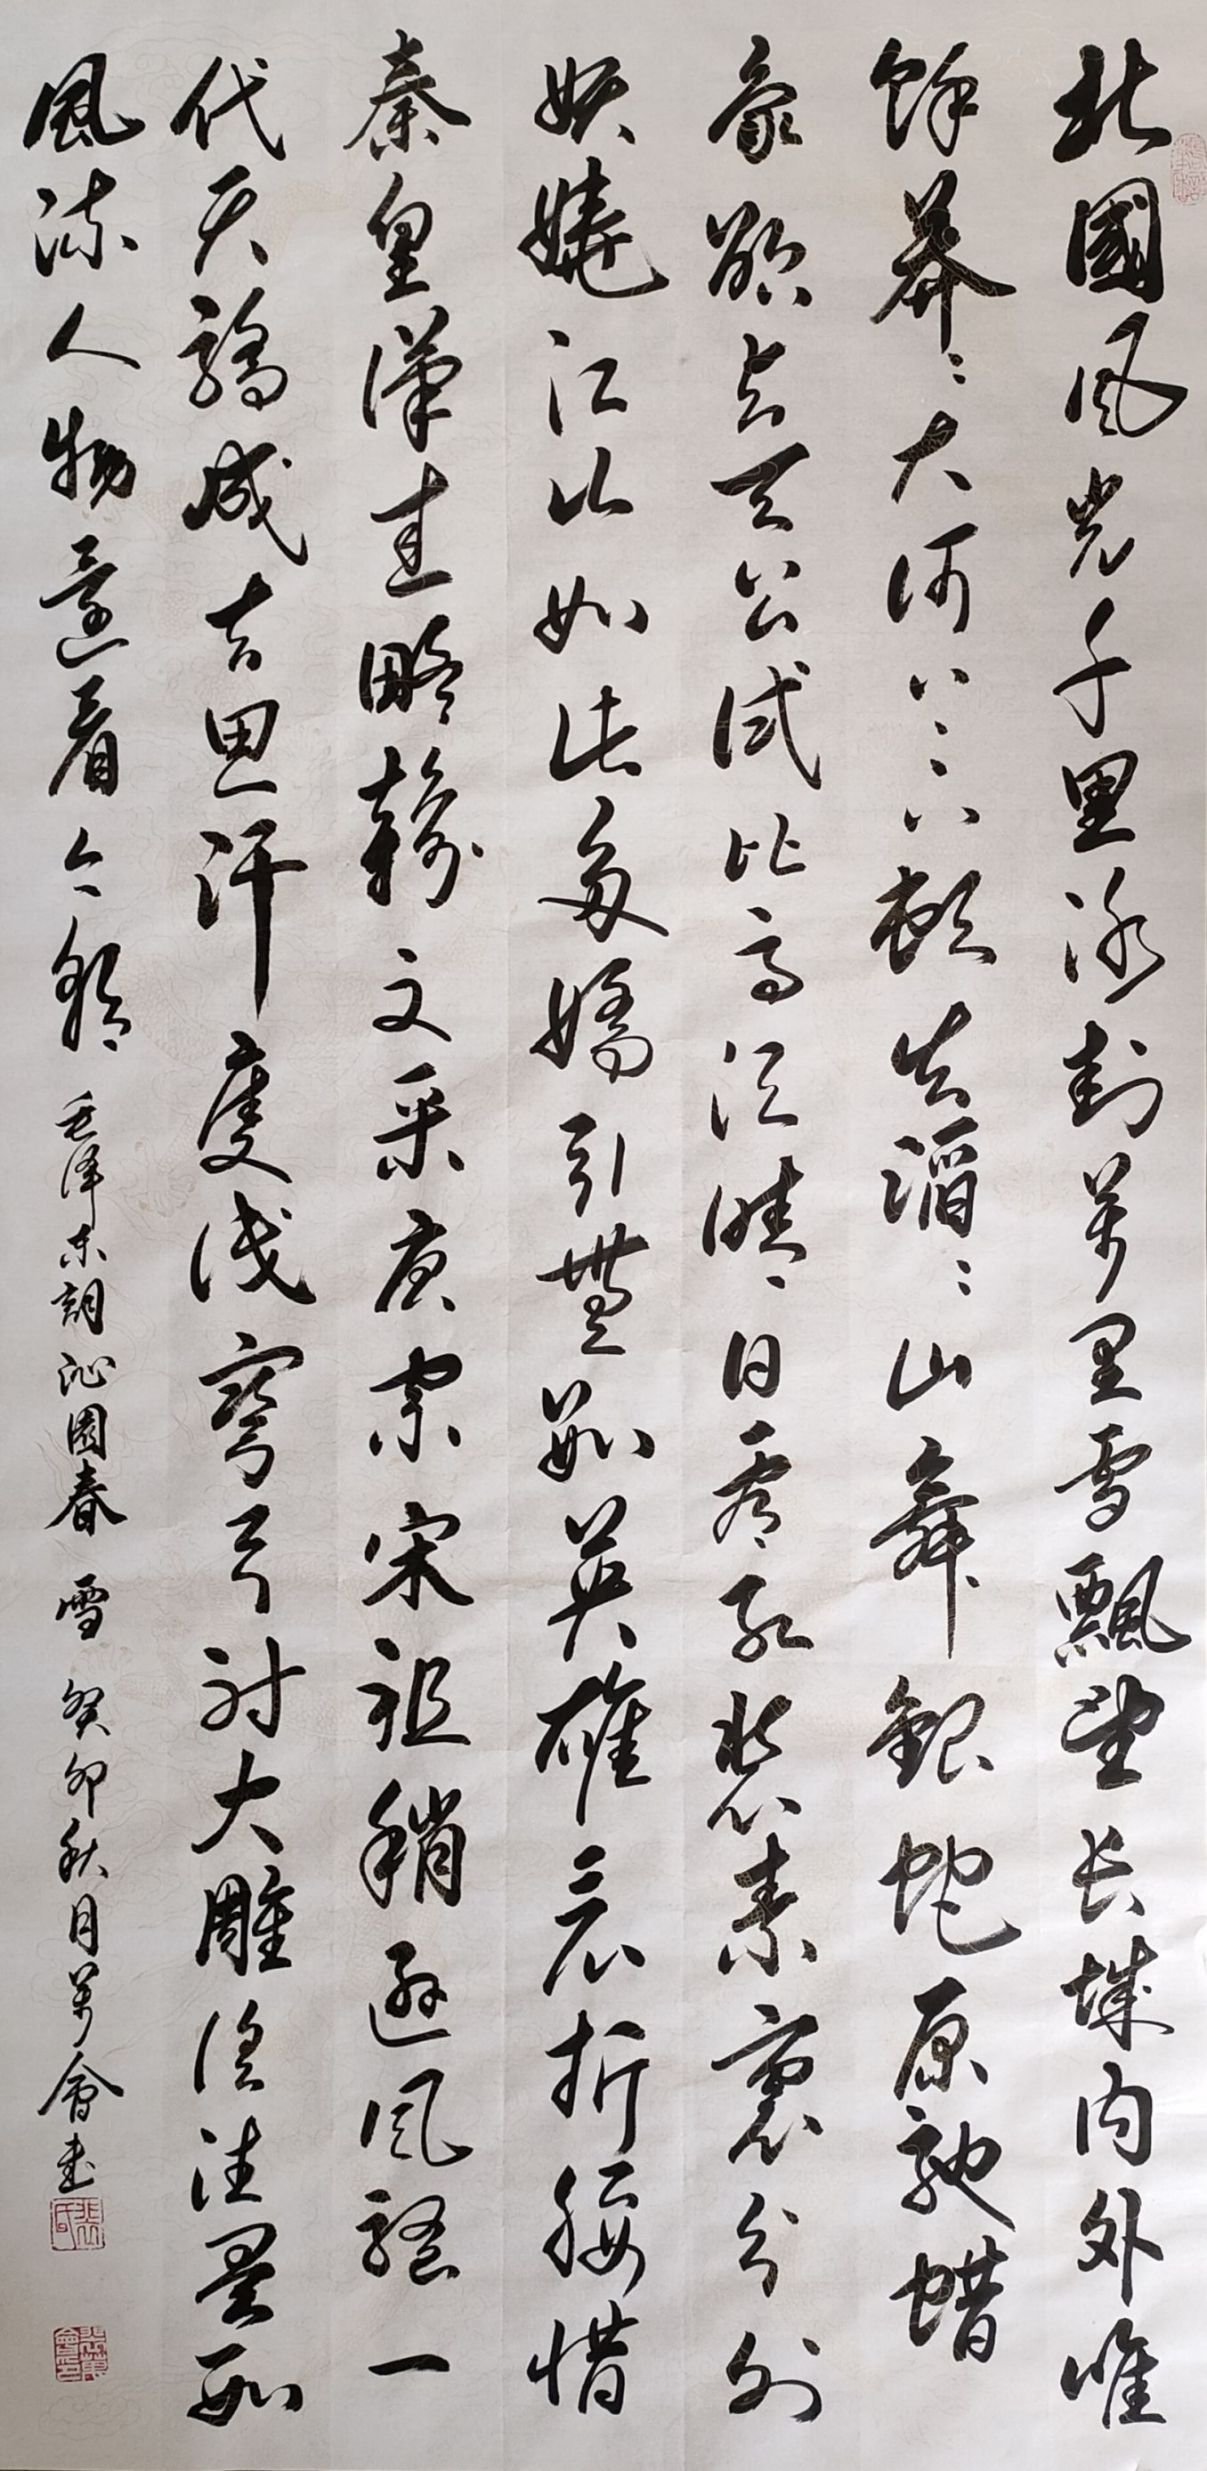 北國风光千里冰封萬里雪飄望长城内外唯
餘莽〻大河上下頓失滔〻山舞銀蛇原馳蜡
象欲与天公试比高须晴日看红装素裹分外
妖娆江山如此多嬌引無數英雄竞折腰惜
秦皇漢武略输文采唐宗宋祖稍遜风骚一
代天骄成吉思汗只識弯弓射大雕俱往矣數
風流人物還看今朝
毛泽东词沁園春 雪 癸卯秋月萬會书